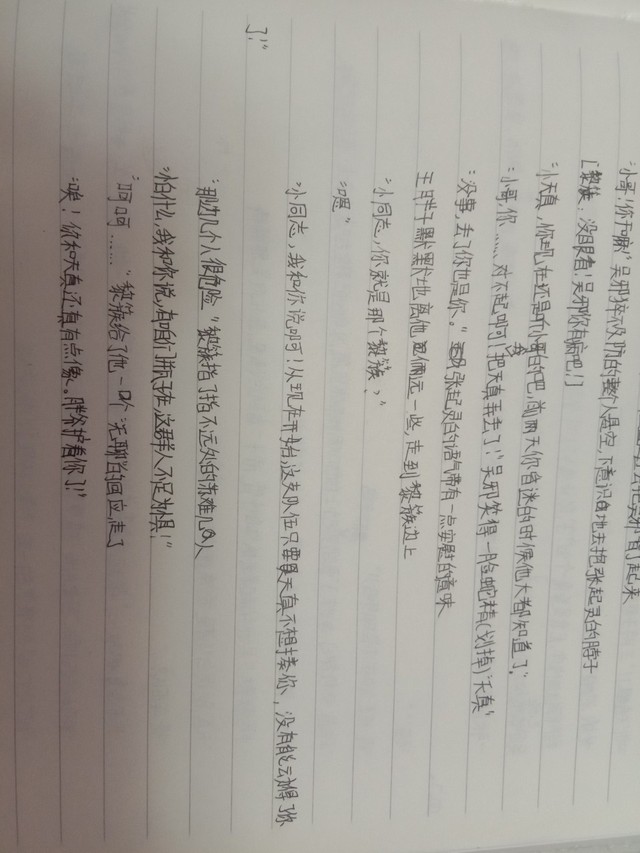 “小哥！你干嘛！”吴邪猝不及防的整个人悬空，下意识自地去抱张起灵的脖子
[黎簇：没眼看！吴邪你有病吧！]
“小天真，你吧，在还是小哥的吧，前两天你昏迷的时候他大都知道了。”
“小哥，你……对不起啊！我把天真弄丢了！”吴邪笑得一脸蛇精（划掉）天真”
“没事，丢了你也是你。”张起灵的语气带有一点安慰的意味
王胖子默默地离他俩远一些，走到黎簇边上
“小同志，你就是那个黎簇，”
“嗯”
“小同志，我和你说啊！从现在开始，这支队伍只要跟天真不想揍你，没有能动得了你
了！”
“那边几个人很危险”黎簇指了指不远处的苏难几人
“怕什么，我和你说，有咱们瓶子在，这群人不足为惧！”
“呵呵……”黎簇给了他一个无聊的回应走了
“唉！你和天真还有有点像。胖爷护着你了！”